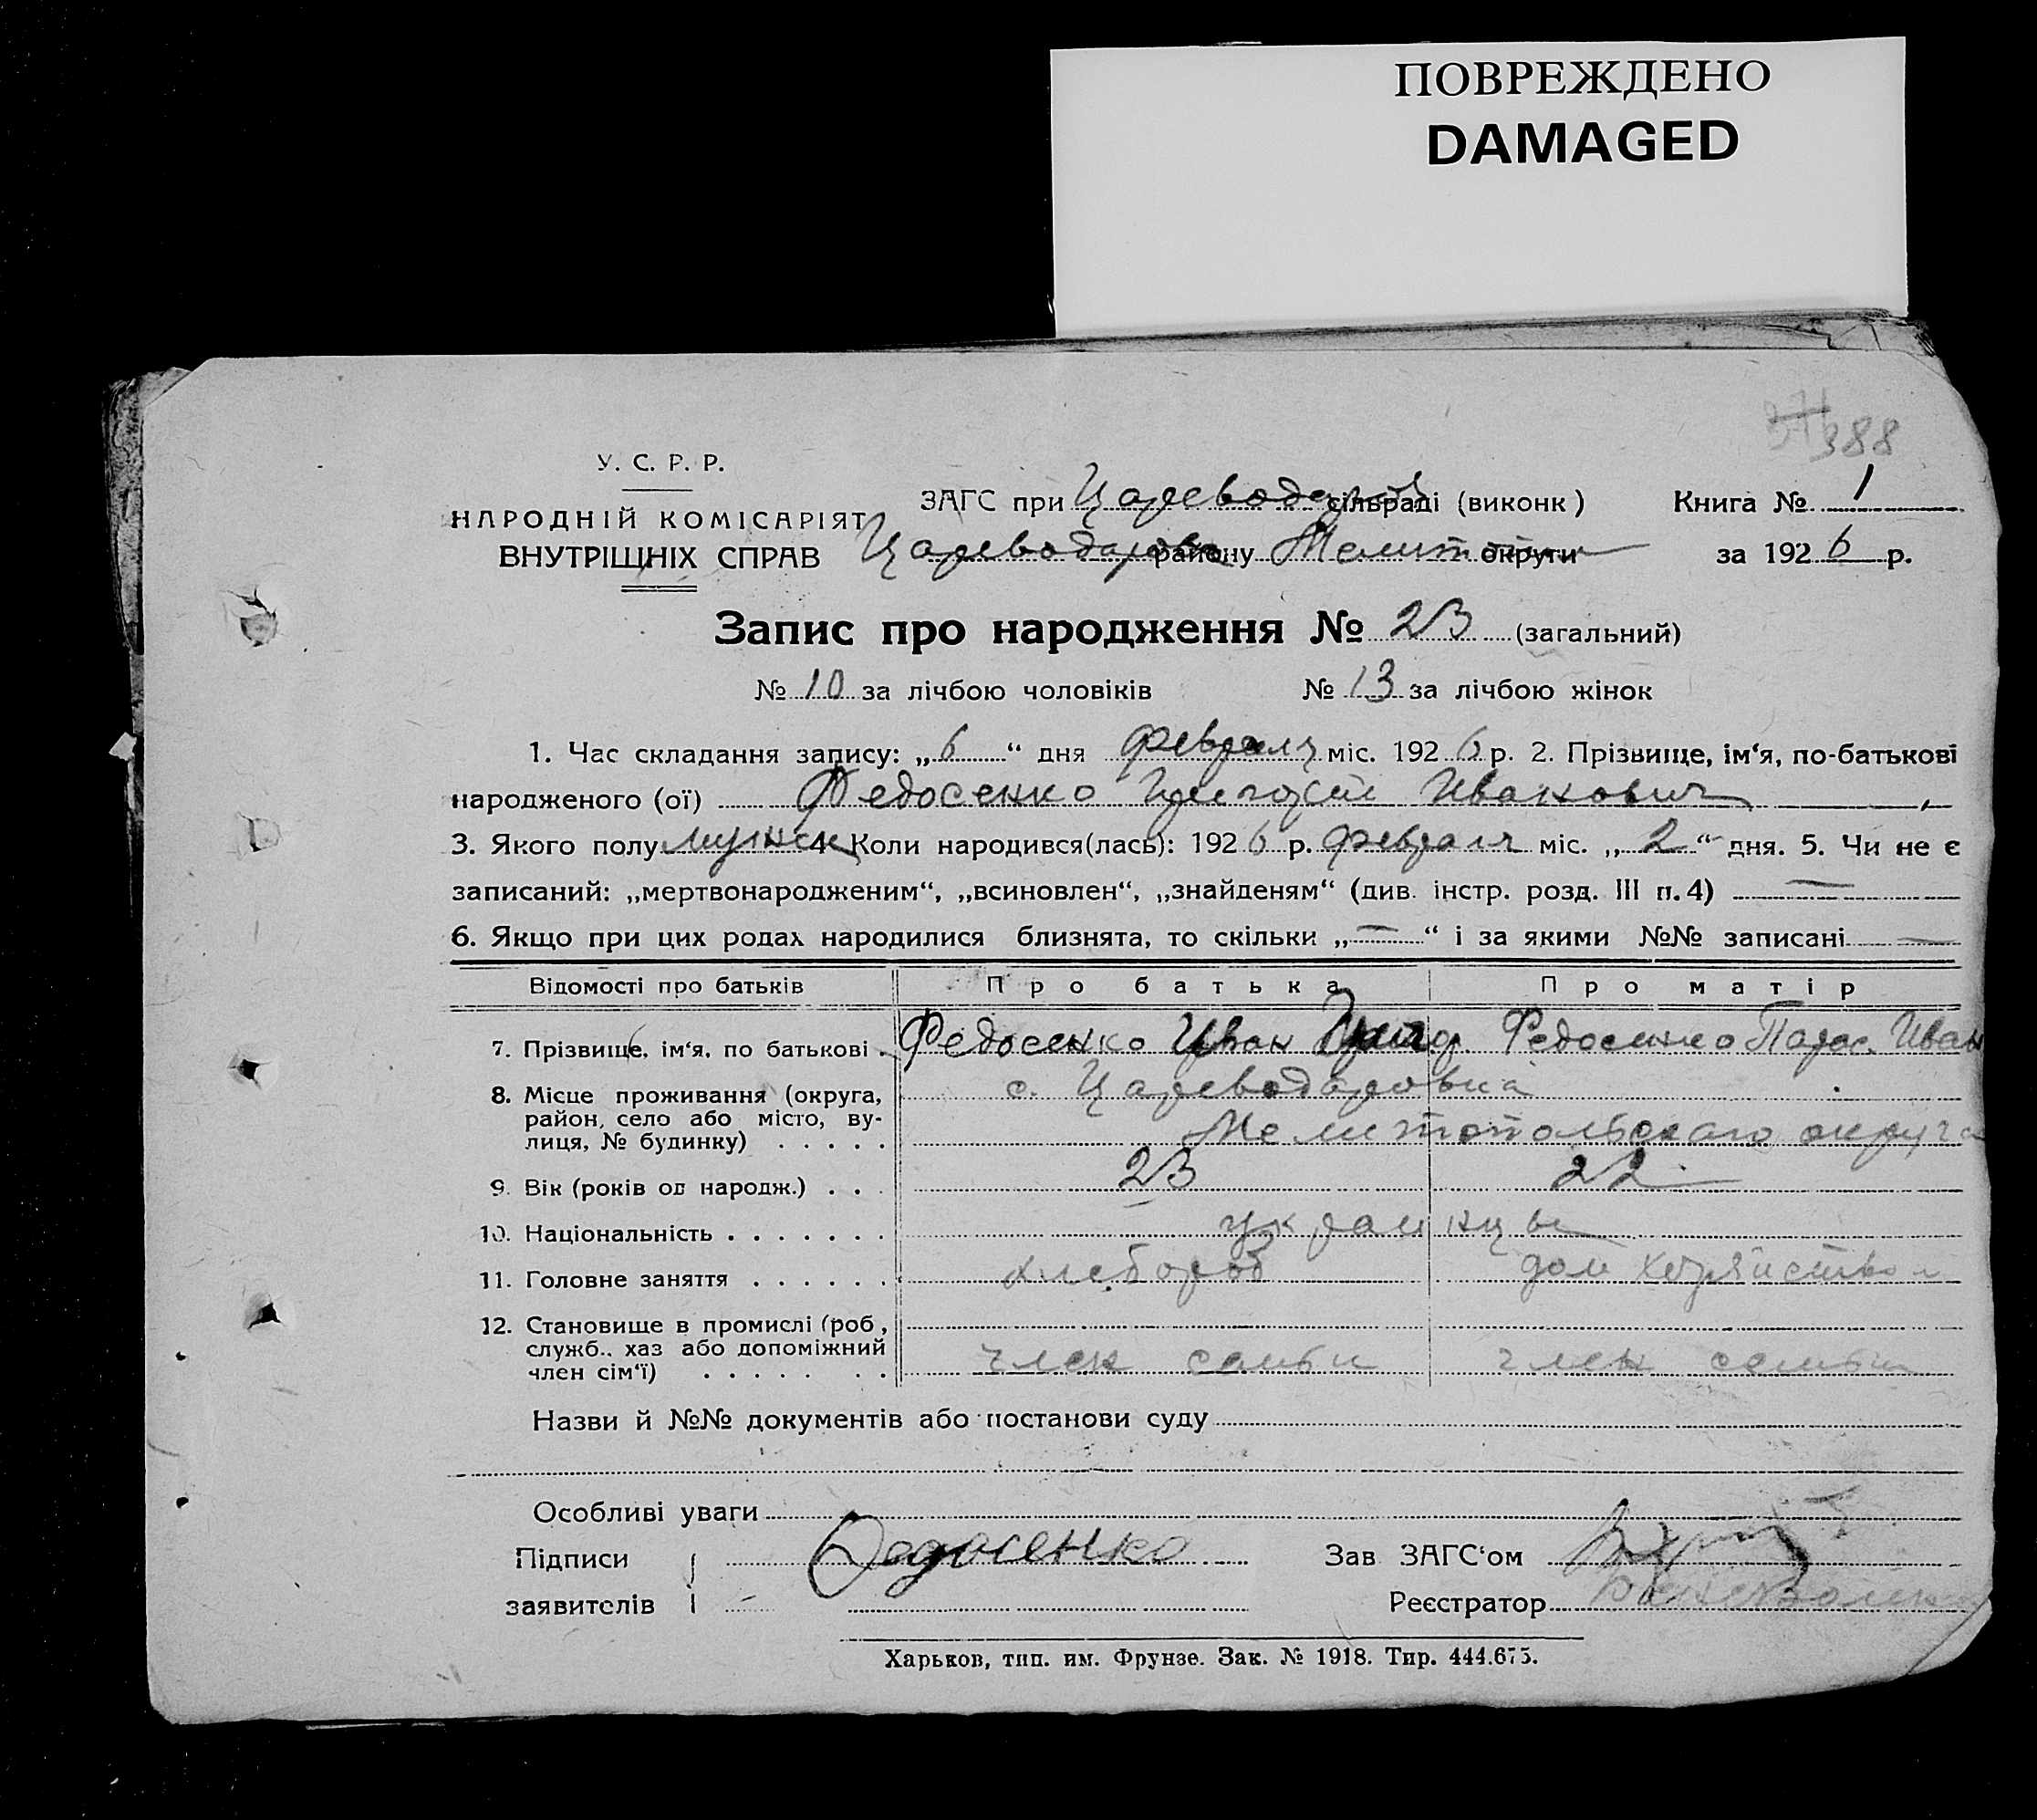 ПОВРЕЖДЕНО
DAMAGED
388
У. С. Р. Р.
НАРОДНІЙ КОМІСАРІЯТ
ВНУТРІШНІХ СПРАВ
ЗАГС при Цареводар сільраді (виконк) Книга № 1
Цареводаров району Мелитоп округи за 1926 р.
Запис про народження № 23 (загальний)
№ 10 за лічбою чоловіків № 13 за лічбою жінок
1. Час складання запису: „6“ дня февраля міс. 1926 р. 2. Прізвище, ім‘я, по-батькові
народженого (ої) Федосенко Григорий Иванович
3. Якого полу мужск 4 Коли народився(лась): 1926 р. февраля міс. „2“ дня. 5. Чи не є
записаний: „мертвонародженим“, „всиновлен“, „знайденям“ (див. інстр. розд. III п. 4) —
6. Якщо при цих родах народилися близнята, то скільки „—“ і за якими №№ записані —
Відомості про батьків Про батька Про матір
7. Прізвище, ім‘я, по батькові . Федосенко Иван Григор. Федосенко Парас. Иван
8. Місце проживання (округа, с. Цареводаровка
район, село або місто, ву-
лиця, № будинку) . . . . . Мелитопольского округа
9. Вік (років од народж.) . . . 23 22
10. Національність . . . . . . . украинцы
11. Головне заняття . . . . . . хлебороб дом хозяйством
12. Становище в промислі (роб.,
служб., хаз або допоміжний
член сім‘ї) . . . . . . . член семьи член семьи
Назви й №№ документів або постанови суду
Особливі уваги
Підписи Федосенко Зав ЗАГС‘ом
заявителів Реєстратор
Харьков, тип. им. Фрунзе. Зак. № 1918. Тир. 444.675.